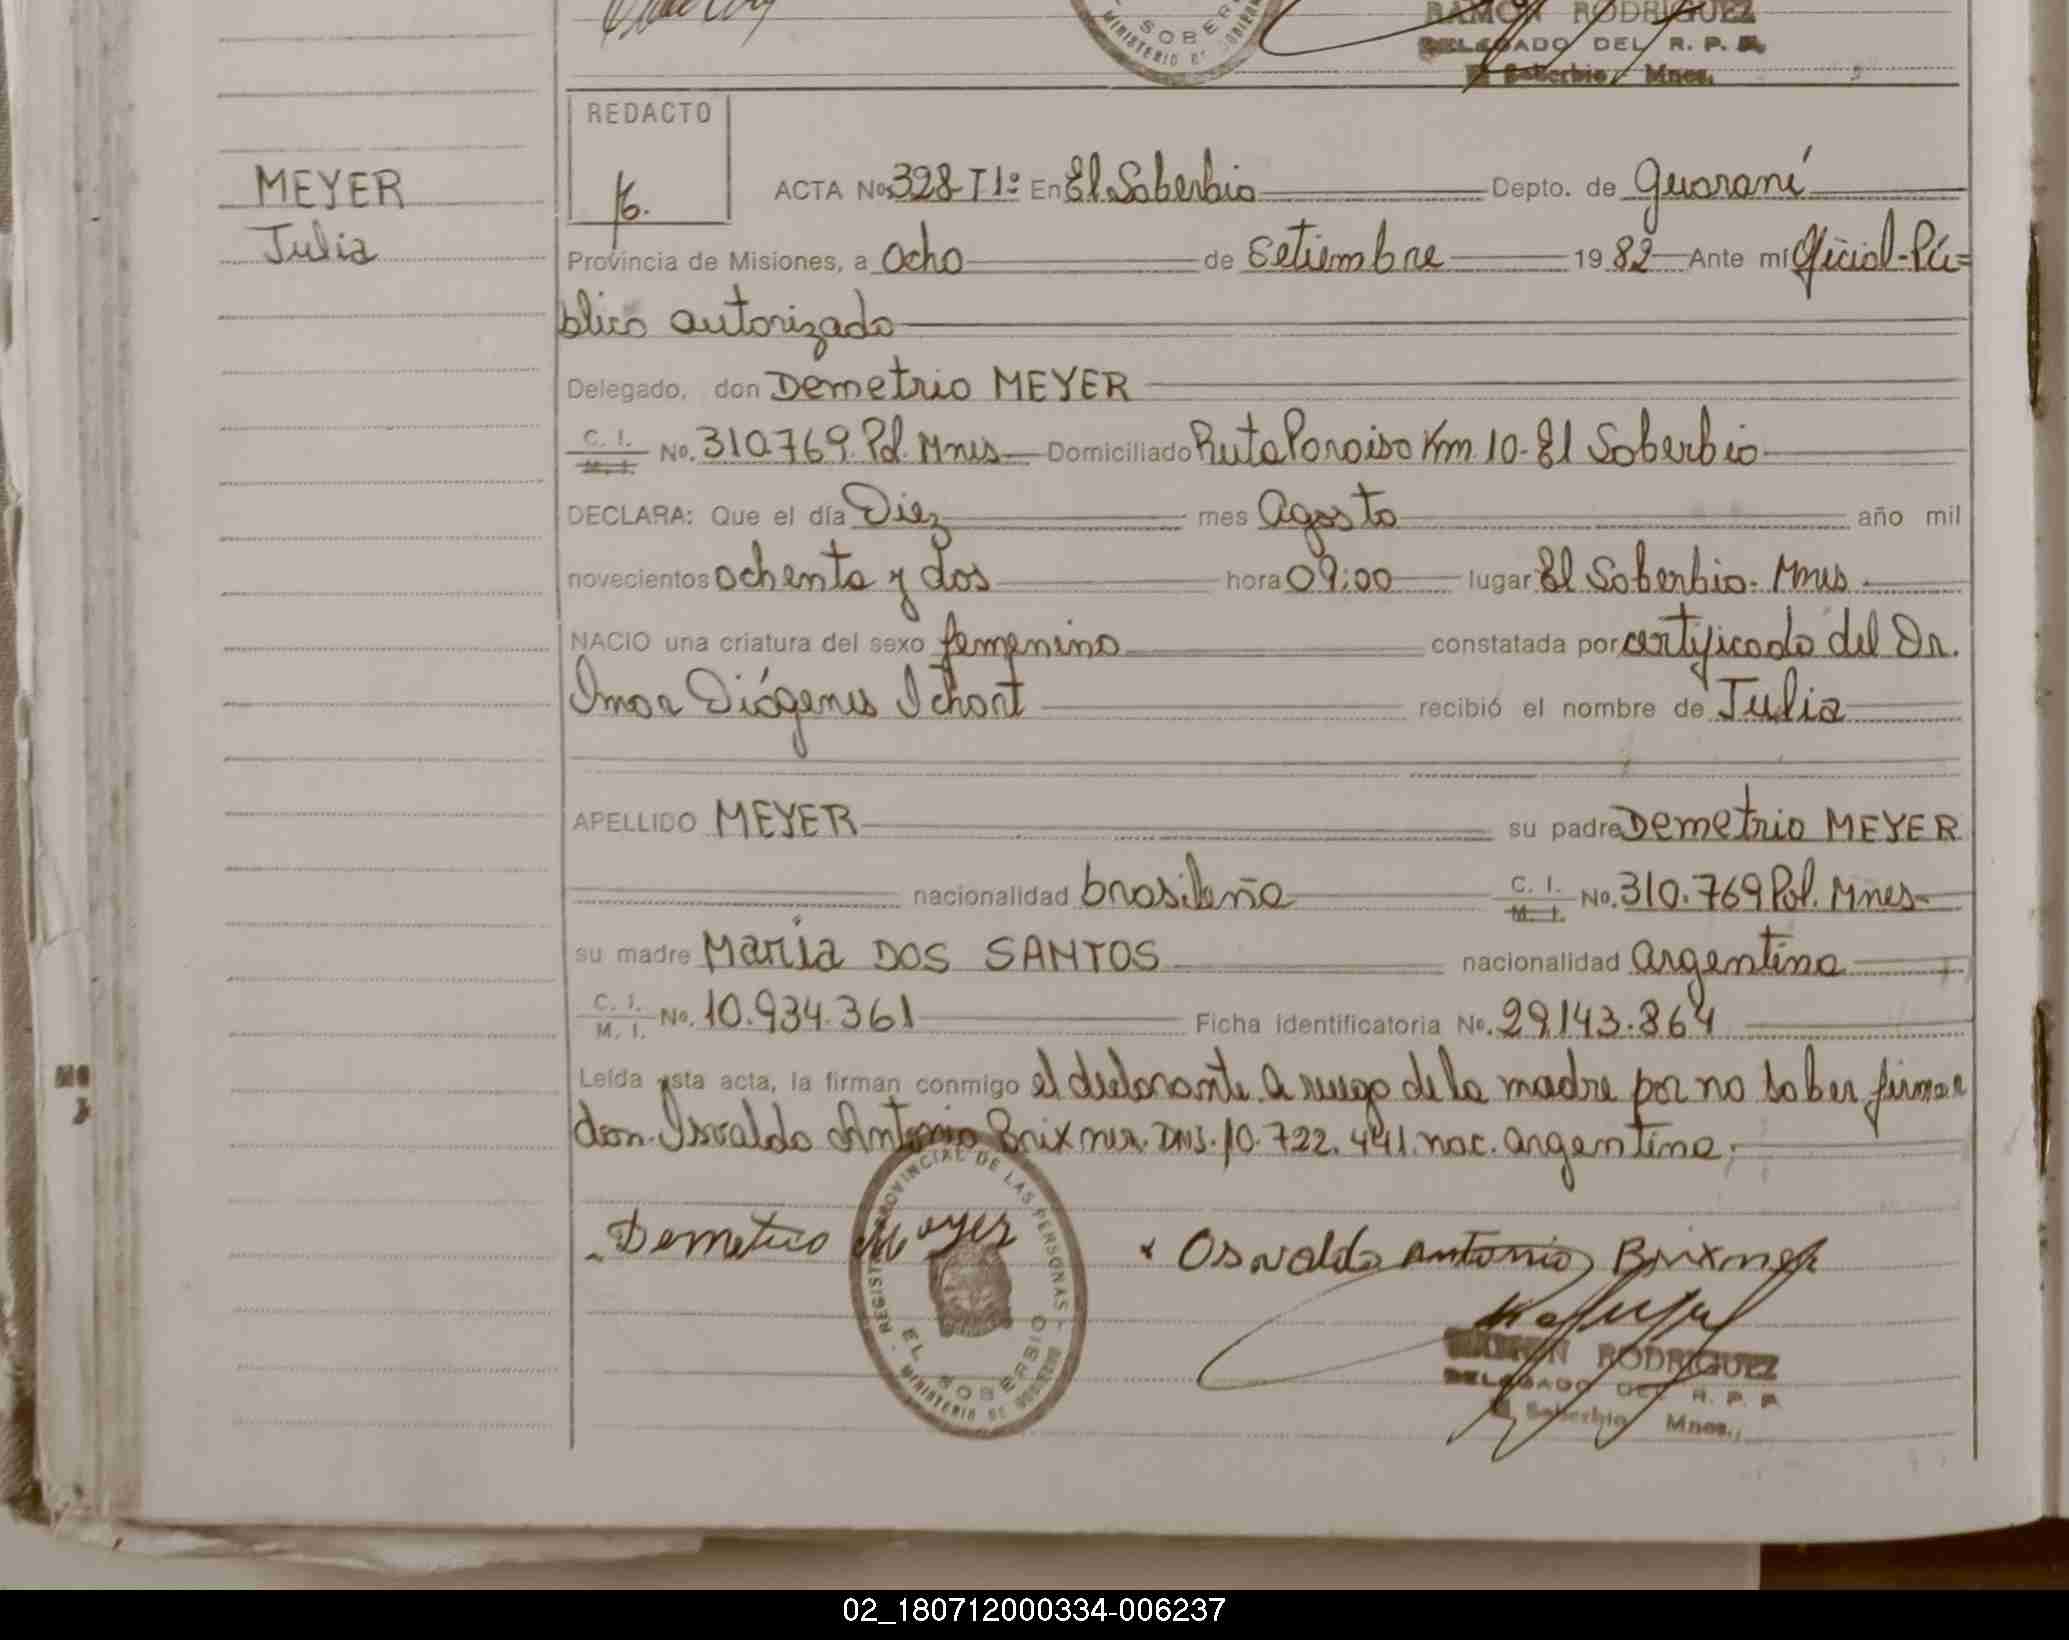 SOBER
MINISTERIO DE GOBIERN
RAMON RODRIGUEZ
DELEGADO DEL R. P. P.
El Soberbio Mnes.
REDACTO
MEYER
Julia
ACTA No. 328-T1º En El Soberbio Depto. de Guaraní
Provincia de Misiones, a Ocho de Setiembre 1982 Ante mí Oficial-Pú=
blico autorizado
Delegado, don Demetrio MEYER
C. I. M. I. No. 310.769. Pol. Mnes Domiciliado Ruta Paraiso Km 10-El Soberbio
DECLARA: Que el día Diez mes Agosto año mil
novecientos ochenta y dos hora 09:00 lugar El Soberbio-Mnes
NACIO una criatura del sexo femenino constatada por certificado del Dr.
Imar Diógenes Ichart recibió el nombre de Julia
APELLIDO MEYER su padre Demetrio MEYER
nacionalidad brasileña C. I. M. I. No. 310.769 Pol. Mnes
su madre María DOS SANTOS nacionalidad argentina
C. I. M. I. No. 10.934.361 Ficha identificatoria No. 29.143.864
Leída esta acta, la firman conmigo el declarante. A ruego de la madre por no saber firmar
don. Isvaldo Antonio Brixner. DNI. 10.722.441. nac. argentina.
Demetrio Meyer
Osvaldo Antonio Brixner
REGISTRO PROVINCIAL DE LAS PERSONAS
EL SOBERBIO
MINISTERIO DE GOBIERNO
RAMON RODRIGUEZ
DELEGADO DEL R. P. P.
El Soberbio Mnes.
02_180712000334-006237